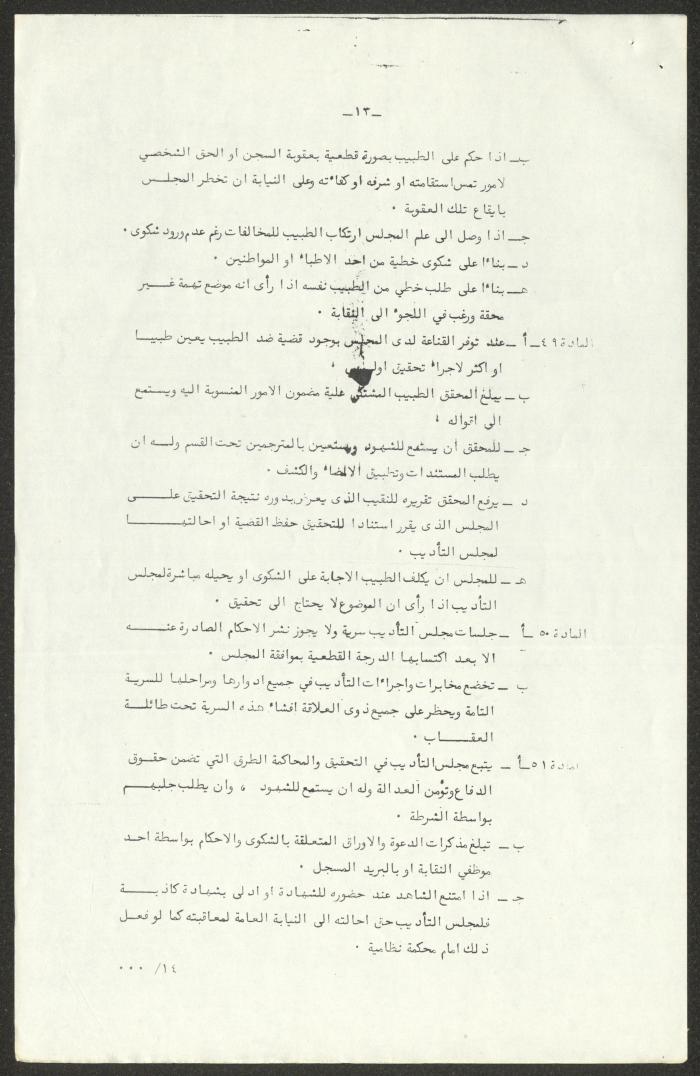 -١٣-
ب- اذا حكم على الطبيب بصورة قطعية بعقوبة السجن او الحق الشخصي
لامور تمس استقامته او شرفه او كفاءته وعلى النيابة ان تخطر المجلس
بايقاع تلك العقوبة .
جـ- اذا وصل الى علم المجلس ارتكاب الطبيب للمخالفات رغم عدم ورود شكوى .
د - بناءا على شكوى خطية من احد الاطباء او المواطنين .
هـ- بناءا على طلب خطي من الطبيب نفسه اذا رأى انه موضع تهمة غير
محقة ورغب في اللجوء الى النقابة .
المادة ٤٩- أ - عند توفر القناعة لدى المجلس بوجود قضية ضد الطبيب يعين طبيبا
او اكثر لاجراء تحقيق
ب - يبلغ المحقق الطبيب المشتكى علية مضمون الامور المنسوبة اليه ويستمع
الى اقواله .
جـ - للمحقق أن يستمع للشهود ويستعين بالمترجمين تحت القسم ولـه ان
يطلب المستندات وتطبيق الامضاء والكشف .
د - يرفع المحقق تقريره للنقيب الذى يعرض بدوره نتيجة التحقيق علـى
المجلس الذى يقرر استنادا للتحقيق حفظ القضية او احالتها
لمجلس التأديب .
هـ - للمجلس ان يكلف الطبيب الاجابة على الشكوى او يحيله مباشرة لمجلس
التأديب اذا رأى ان الموضوع لا يحتاج الى تحقيق .
المادة ٥٠ - أ - جلسات مجلس التأديب سرية ولا يجوز نشر الاحكام الصادرة عنـه
الا بعد اكتسابها الدرجة القطعية بموافقة المجلس .
ب - تخضع مخابرات واجراءات التأديب في جميع ادوارها ومراحلها للسرية
التامة ويحظر على جميع ذوى العلاقة افشاء هذه السرية تحت طائلـة
العقـاب .
المادة ٥١- أ - يتبع مجلس التأديب في التحقيق والمحاكمة الطرق التي تضمن حقـوق
الدفاع وتؤمن العدالة وله ان يستمع للشهود ، وان يطلب جلبهـم
بواسطة الشرطة .
ب - تبلغ مذكرات الدعوة والاوراق المتعلقة بالشكوى والاحكام بواسطة احـد
موظفي النقابة او بالبريد المسجل .
جـ - اذا امتنع الشاهد عند حضوره للشهادة او ادلى بشهادة كاذبـة
فلمجلس التأديب حق احالته الى النيابة العامة لمعاقبته كما لو فعـل
ذلك امام محكمة نظامية .
١٤/ ...